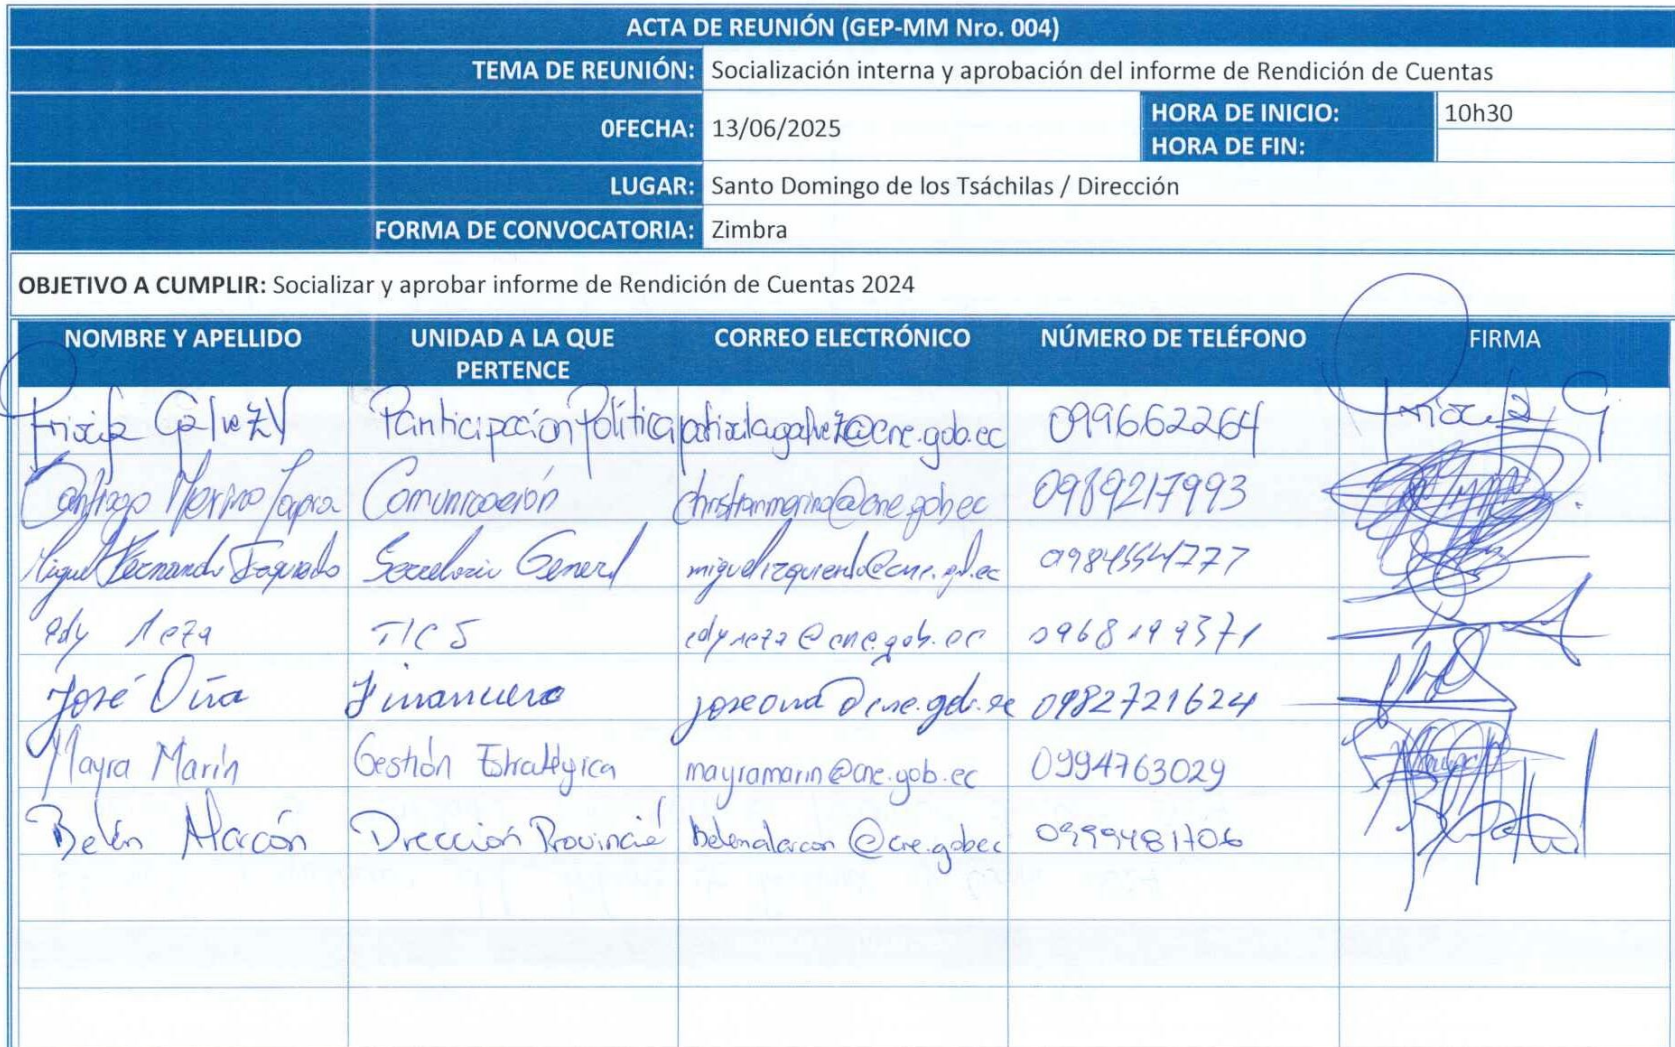 ACTA DE REUNIÓN (GEP-MM Nro. 004)
TEMA DE REUNIÓN: Socialización interna y aprobación del informe de Rendición de Cuentas
0FECHA: 13/06/2025 HORA DE INICIO: 10h30
HORA DE FIN:
LUGAR: Santo Domingo de los Tsáchilas / Dirección
FORMA DE CONVOCATORIA: Zimbra
OBJETIVO A CUMPLIR: Socializar y aprobar informe de Rendición de Cuentas 2024
NOMBRE Y APELLIDO UNIDAD A LA QUE PERTENCE CORREO ELECTRÓNICO NÚMERO DE TELÉFONO FIRMA
Gálvez V Participación Política 099662264
Merino Tapia Comunicación christianmerino@cne.gob.ec 0989217993
Miguel Fernando Izquierdo General miguelizquierdo@cne.gob.ec
edy TICS
José Oña Financiero joseona@cne.gob.ec 0982721624
Mayra Marín Gestión Estratégica mayramarin@cne.gob.ec 0994763029
Belén Alarcón Dirección Provincial belenalarcon@cne.gobec